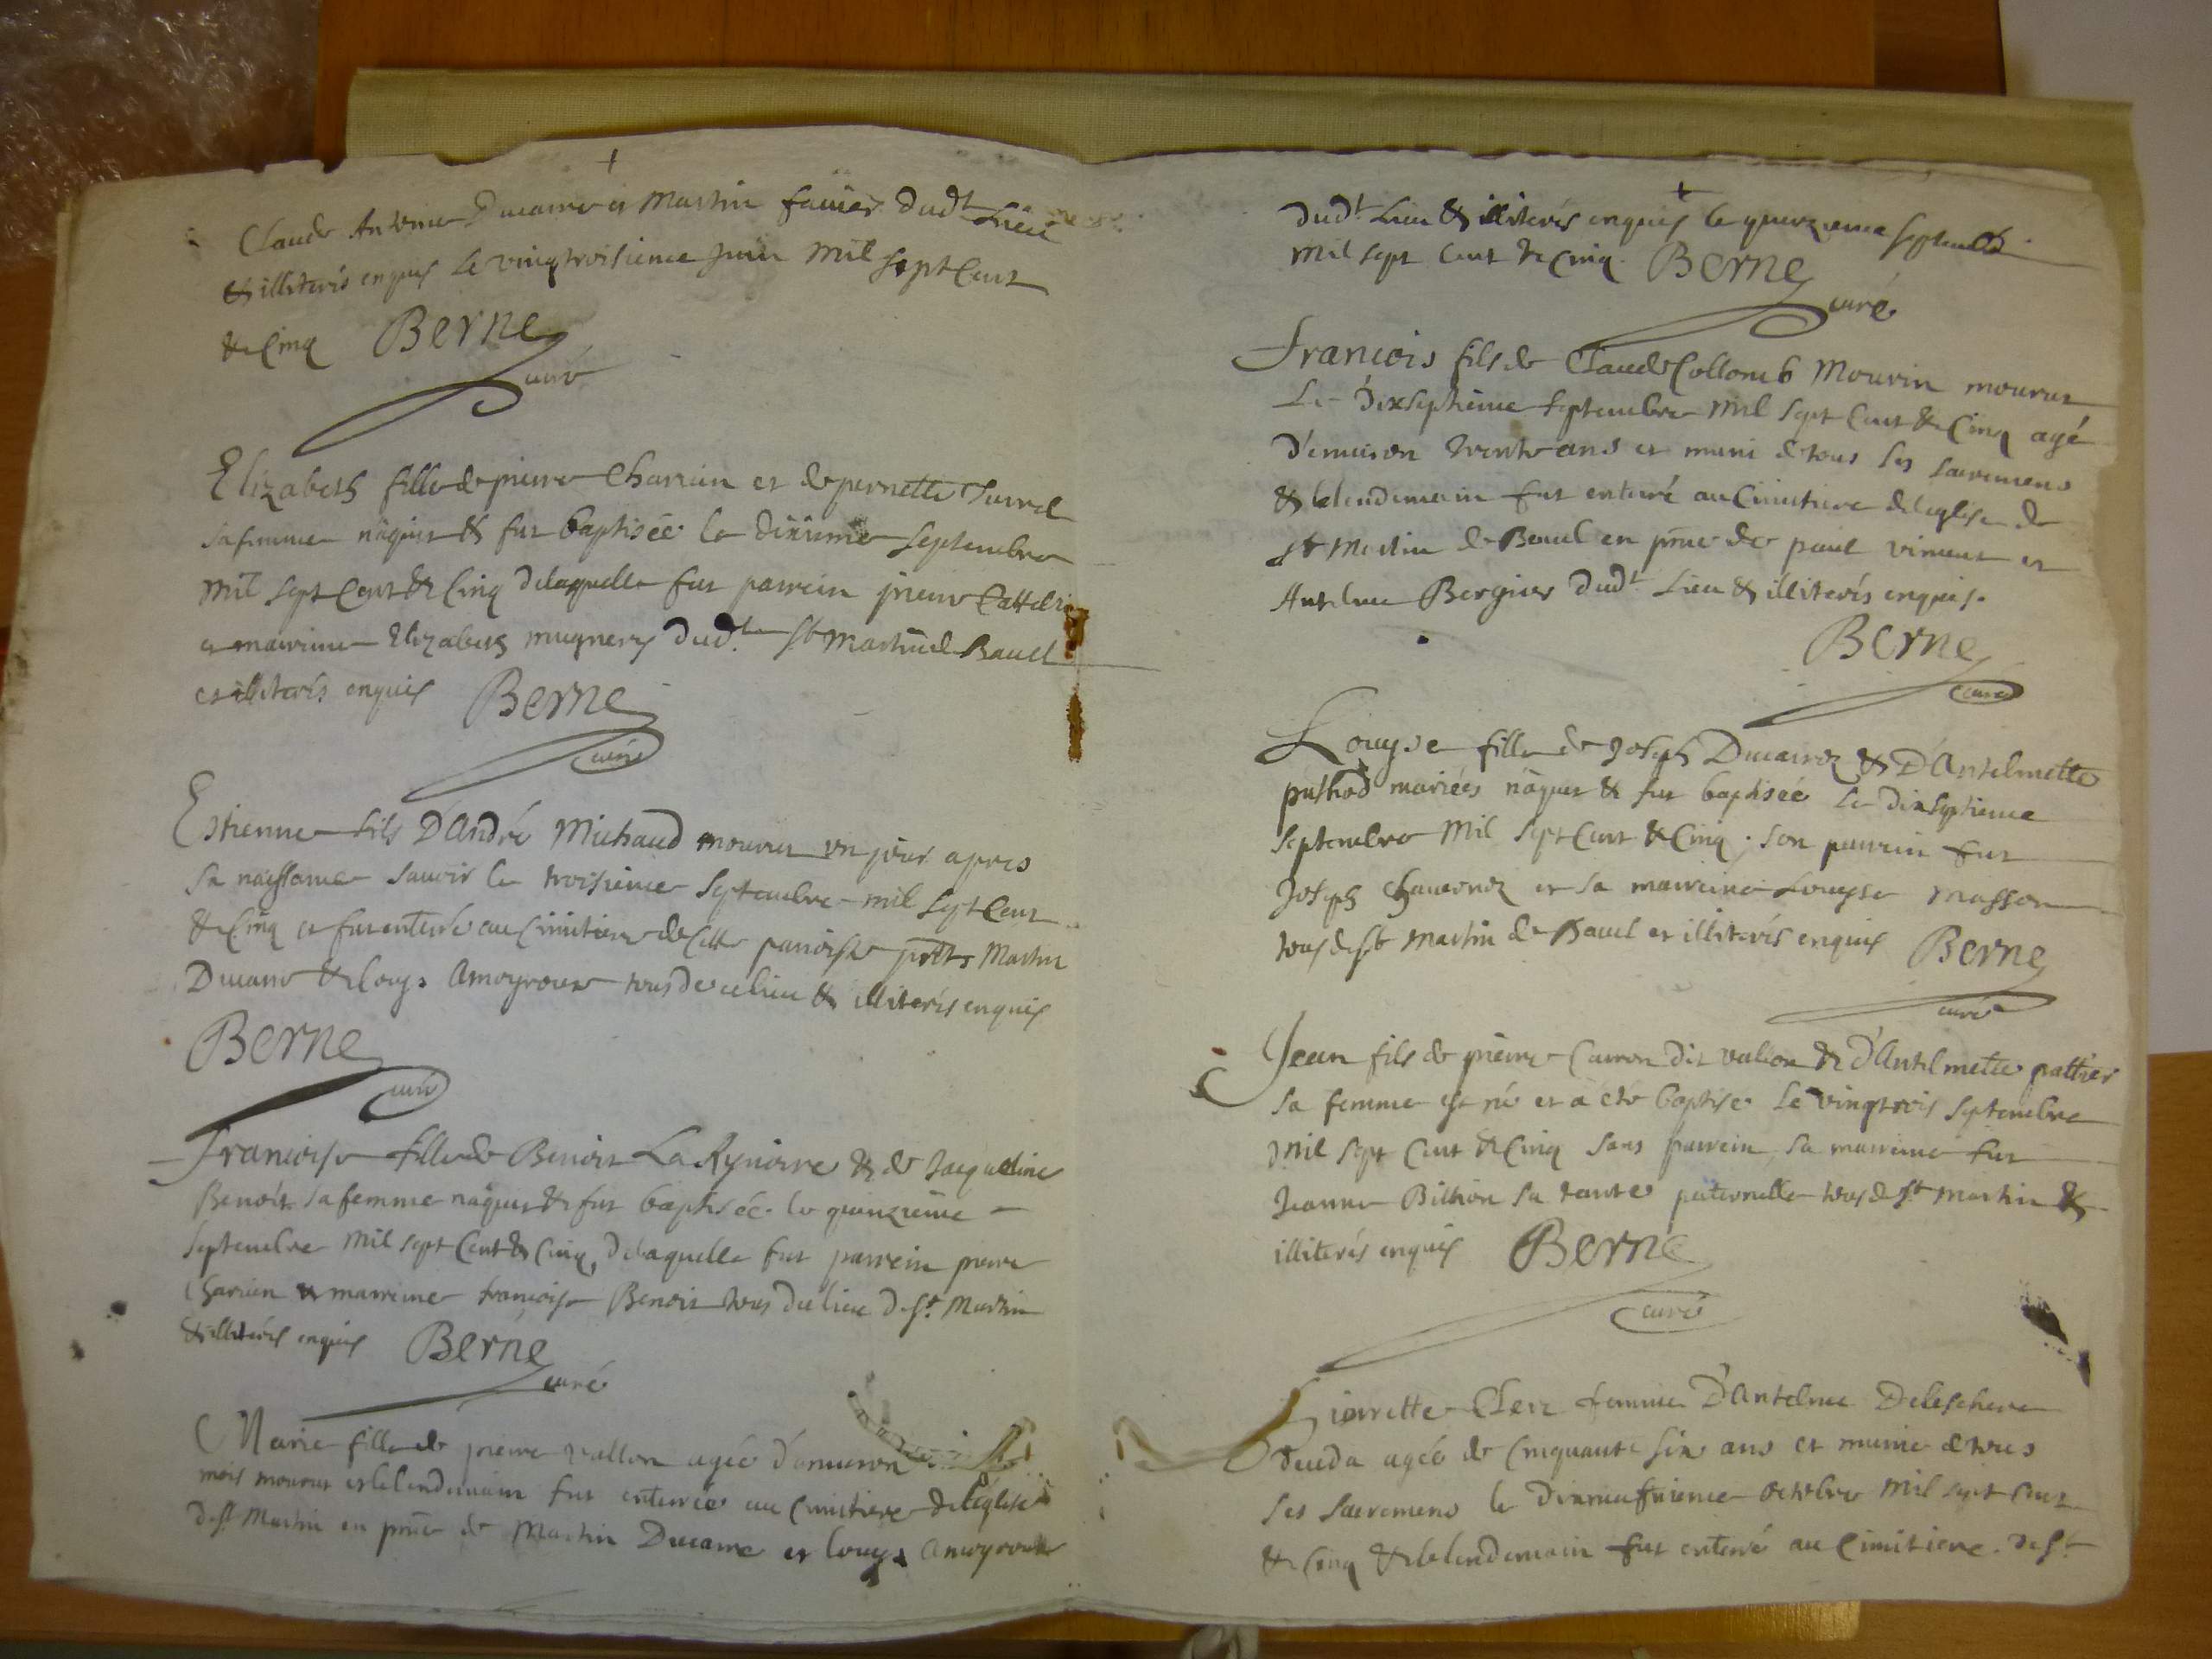 Claude Antoine Ducarre et Martin favier dudt Lieu
& illiterés enquis Le vingtroisieme Juin mil sept Cent
& Cinq Berne
curé
Elizabeth fille de pierre Charvin et de pernette Turrel
sa femme nâquit & fut baptisée le dixième septembre
mil sept Cent & Cinq delaquelle fut parrein pierre
et marreine Elizabeth mugnery dudt St Martin de Bavel
et illiterés enquis Berne
curé
Estienne fils D'André Michaud mourut un jour apres
sa naissance savoir le troisième septembre mil sept Cent
& Cinq et fut enterré au Cimitiere de Cette parroisse pnts Martin
Ducarre & Louys Amoyroux tous de ce lieu & illiterés enquis
Berne
curé
Francoise fille de Benoit La Rynoire & de Jacqueline
Benoit sa femme nâquit & fut baptisée le quinzieme
septembre mil sept Cent & Cinq, delaquelle fut parrein pierre
Charvin & marreine francoise Benoit tous du lieu de St Martin
& illiterés enquis Berne
curé
Marie fille de pierre vallon agée d'environ
mois mourut et le lendemain fut enterrée au Cimitiere de l'Eglise
de St Martin en pnce de Martin Ducarre et Louys Amoyroux
dudt Lieu & illiterés enquis le quinzieme septembre
mil sept Cent & Cinq. Berne
curé
Francois fils de Claude Collomb Mouvin mourut
Le Dixseptieme septembre mil sept Cent & Cinq agé
D'environ trente ans et muni de tous les sacremens
& le lendemain fut enterré au Cimitiere de l'eglise de
St Martin de Bavel en pnce de paul vincent et
Antelme Bergier dudt Lieu & illiterés enquis.
Berne
curé
Louyse fille de Joseph Ducarroz & D'Antelmette
puthod mariées nâquit & fut baptisée Le dixseptieme
septembre mil sept Cent & Cinq; son parrein fut
Joseph et sa marreine Louyse Masson
tous de St Martin de Bavel et illiterés enquis Berne
curé
Jean fils de pierre Carron dit vallion & d'Antelmette pattier
sa femme est né et a été baptisé Le vingtrois septembre
mil sept Cent & Cinq sans parrein, sa marreine fut
Jeanne Billion sa tante paternelle tous de St Martin &
illiterés enquis Berne
curé
Clerc femme D'Antelme Deleschere
agée de Cinquante six ans et munie de tous
ses sacremens le Dixneufvieme octobre mil sept Cent
& Cinq & le lendemain fut enterré au Cimitiere de St